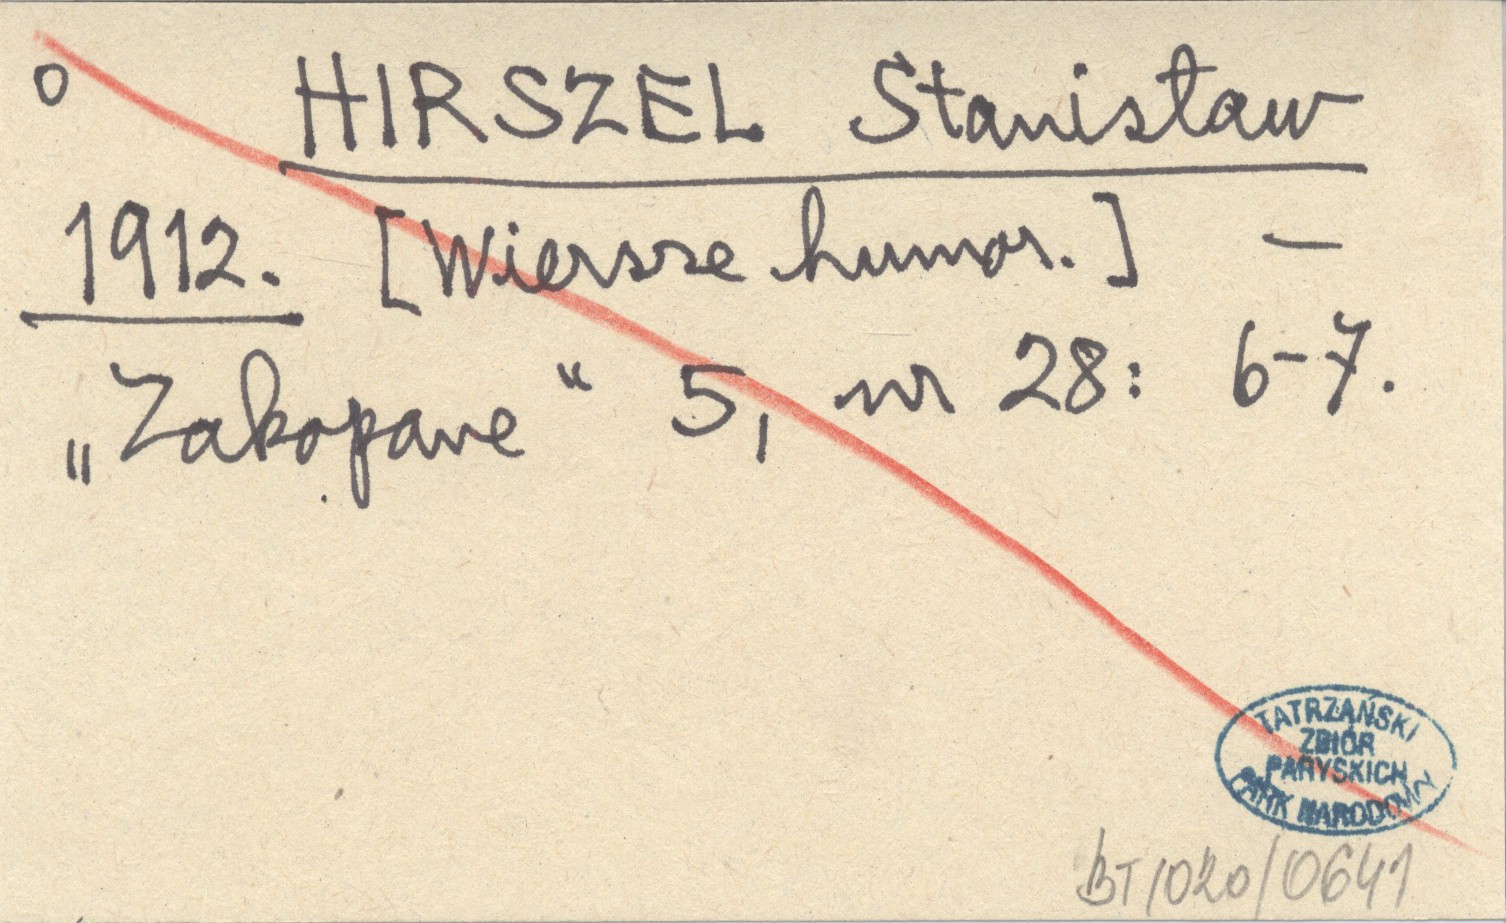 o HIRSZEL Stanisław
1912. [Wiersze humor.] —
„Zakopane“ 5, nr 28: 6-7.
TATRZAŃSKI
ZBIÓR
PARYSKICH
PARK NARODOWY
BT/020/0641